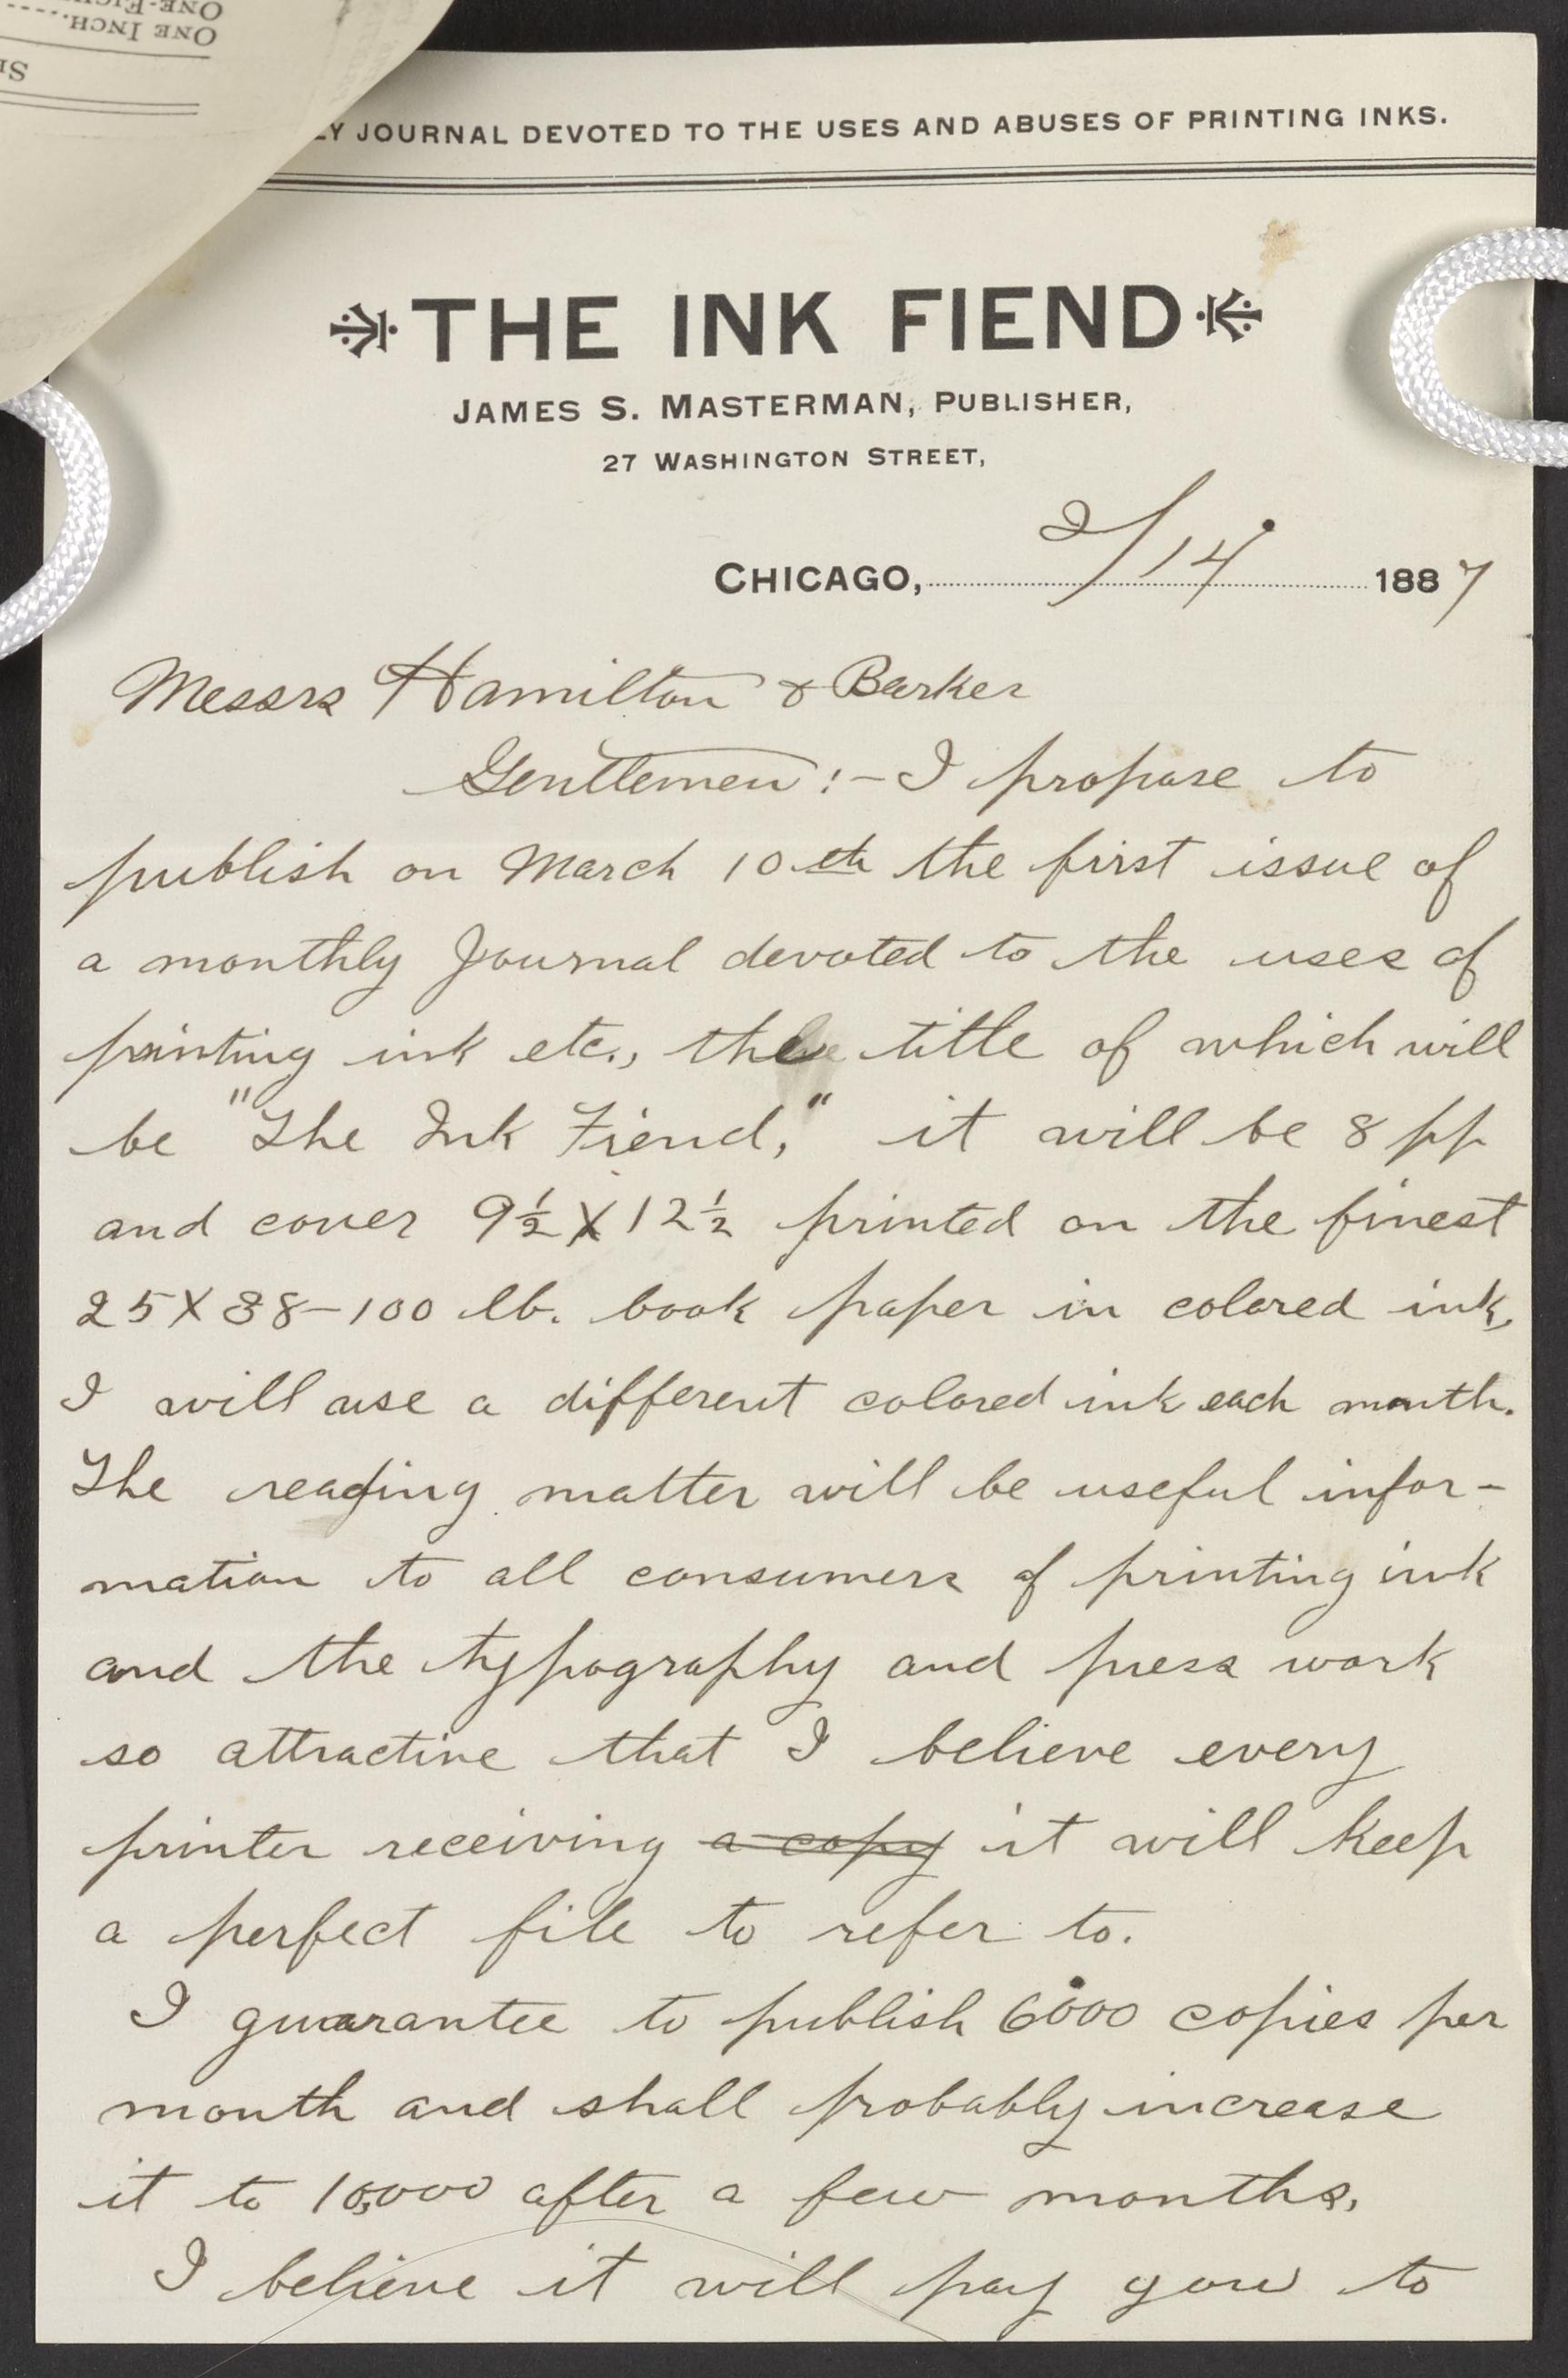 ONE-EIGH
ONE INCH.....
SI
LY JOURNAL DEVOTED TO THE USES AND ABUSES OF PRINTING INKS.
THE INK FIEND
JAMES S. MASTERMAN, PUBLISHER,
27 WASHINGTON STREET,
CHICAGO, 2/14 1887
Messrs Hamilton & Barker
Gentlemen:- I propose to
publish on March 10th the first issue of
a monthly Journal devoted to the uses of
printing ink etc., the title of which will
be "The Ink Fiend," it will be 8 pp
and cover 9½ X 12½ printed on the finest
25 X 38-100 lb. book paper in colored ink,
I will use a different colored ink each month.
The reading matter will be useful infor-
mation to all consumers of printing ink
and the typography and press work
so attractive that I believe every
printer receiving a copy it will keep
a perfect file to refer to.
I guarantee to publish 6000 copies per
month and shall probably increase
it to 10,000 after a few months.
I believe it will pay you to